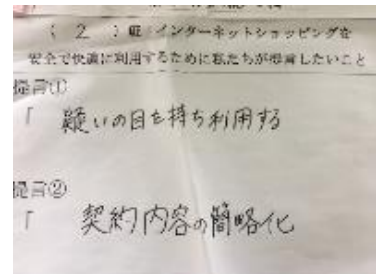 （ 2 ）班：インターネットショッピングを
安全で快適に利用するために私たちが提言したいこと
提言①
「 疑いの目を持ち利用する
提言②
「 契約内容の簡略化